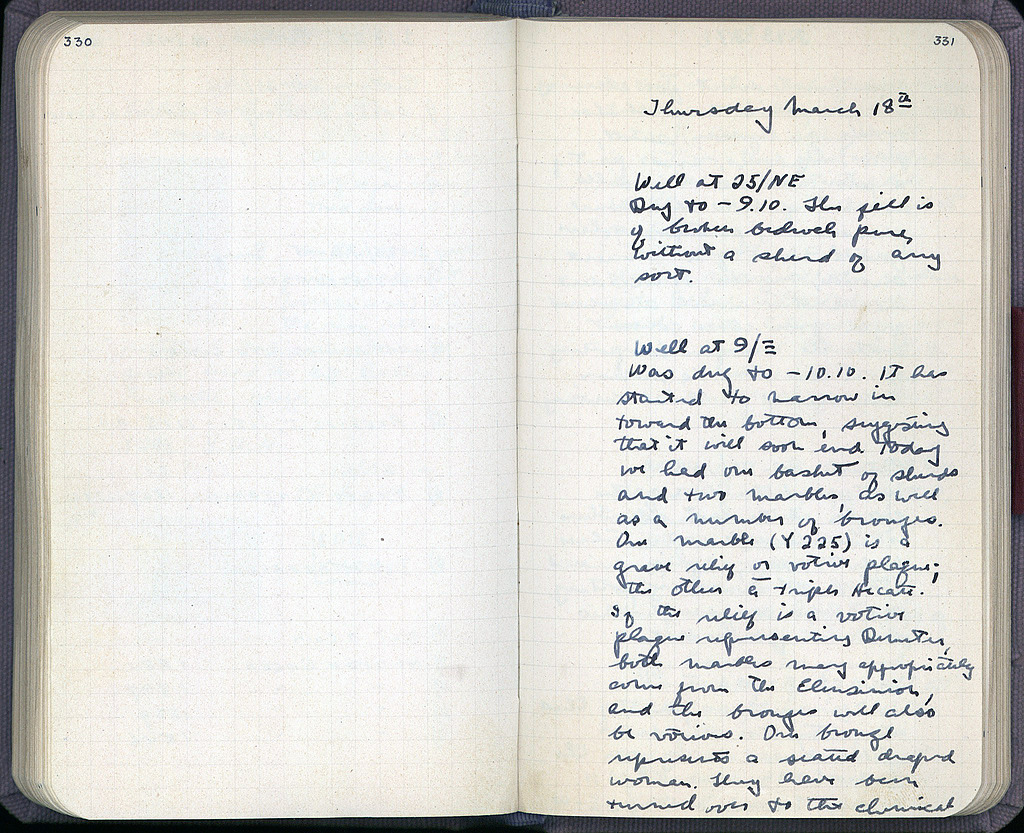 330
331
Thursday March 18th
Well at 25/NE
Dug to -9.10. The fill is
of broken bedrock pure,
without a sherd of any
sort.
Well at 9/Ξ
Was dug to -10.10. It has
started to narrow in
toward the bottom, suggesting
that it will soon end. Today
we had one basket of sherds
and two marbles, as well
as a number of bronzes.
One marble (Y 225) is a
grave relief or votive plaque;
the other a triple Hecate.
If the relief is a votive
plaque representing Demeter,
both marbles may appropriately
come from the Eleusinion,
and the bronzes will also
be votives. One bronze
represents a seated draped
woman. They have been
turned over to the chemical